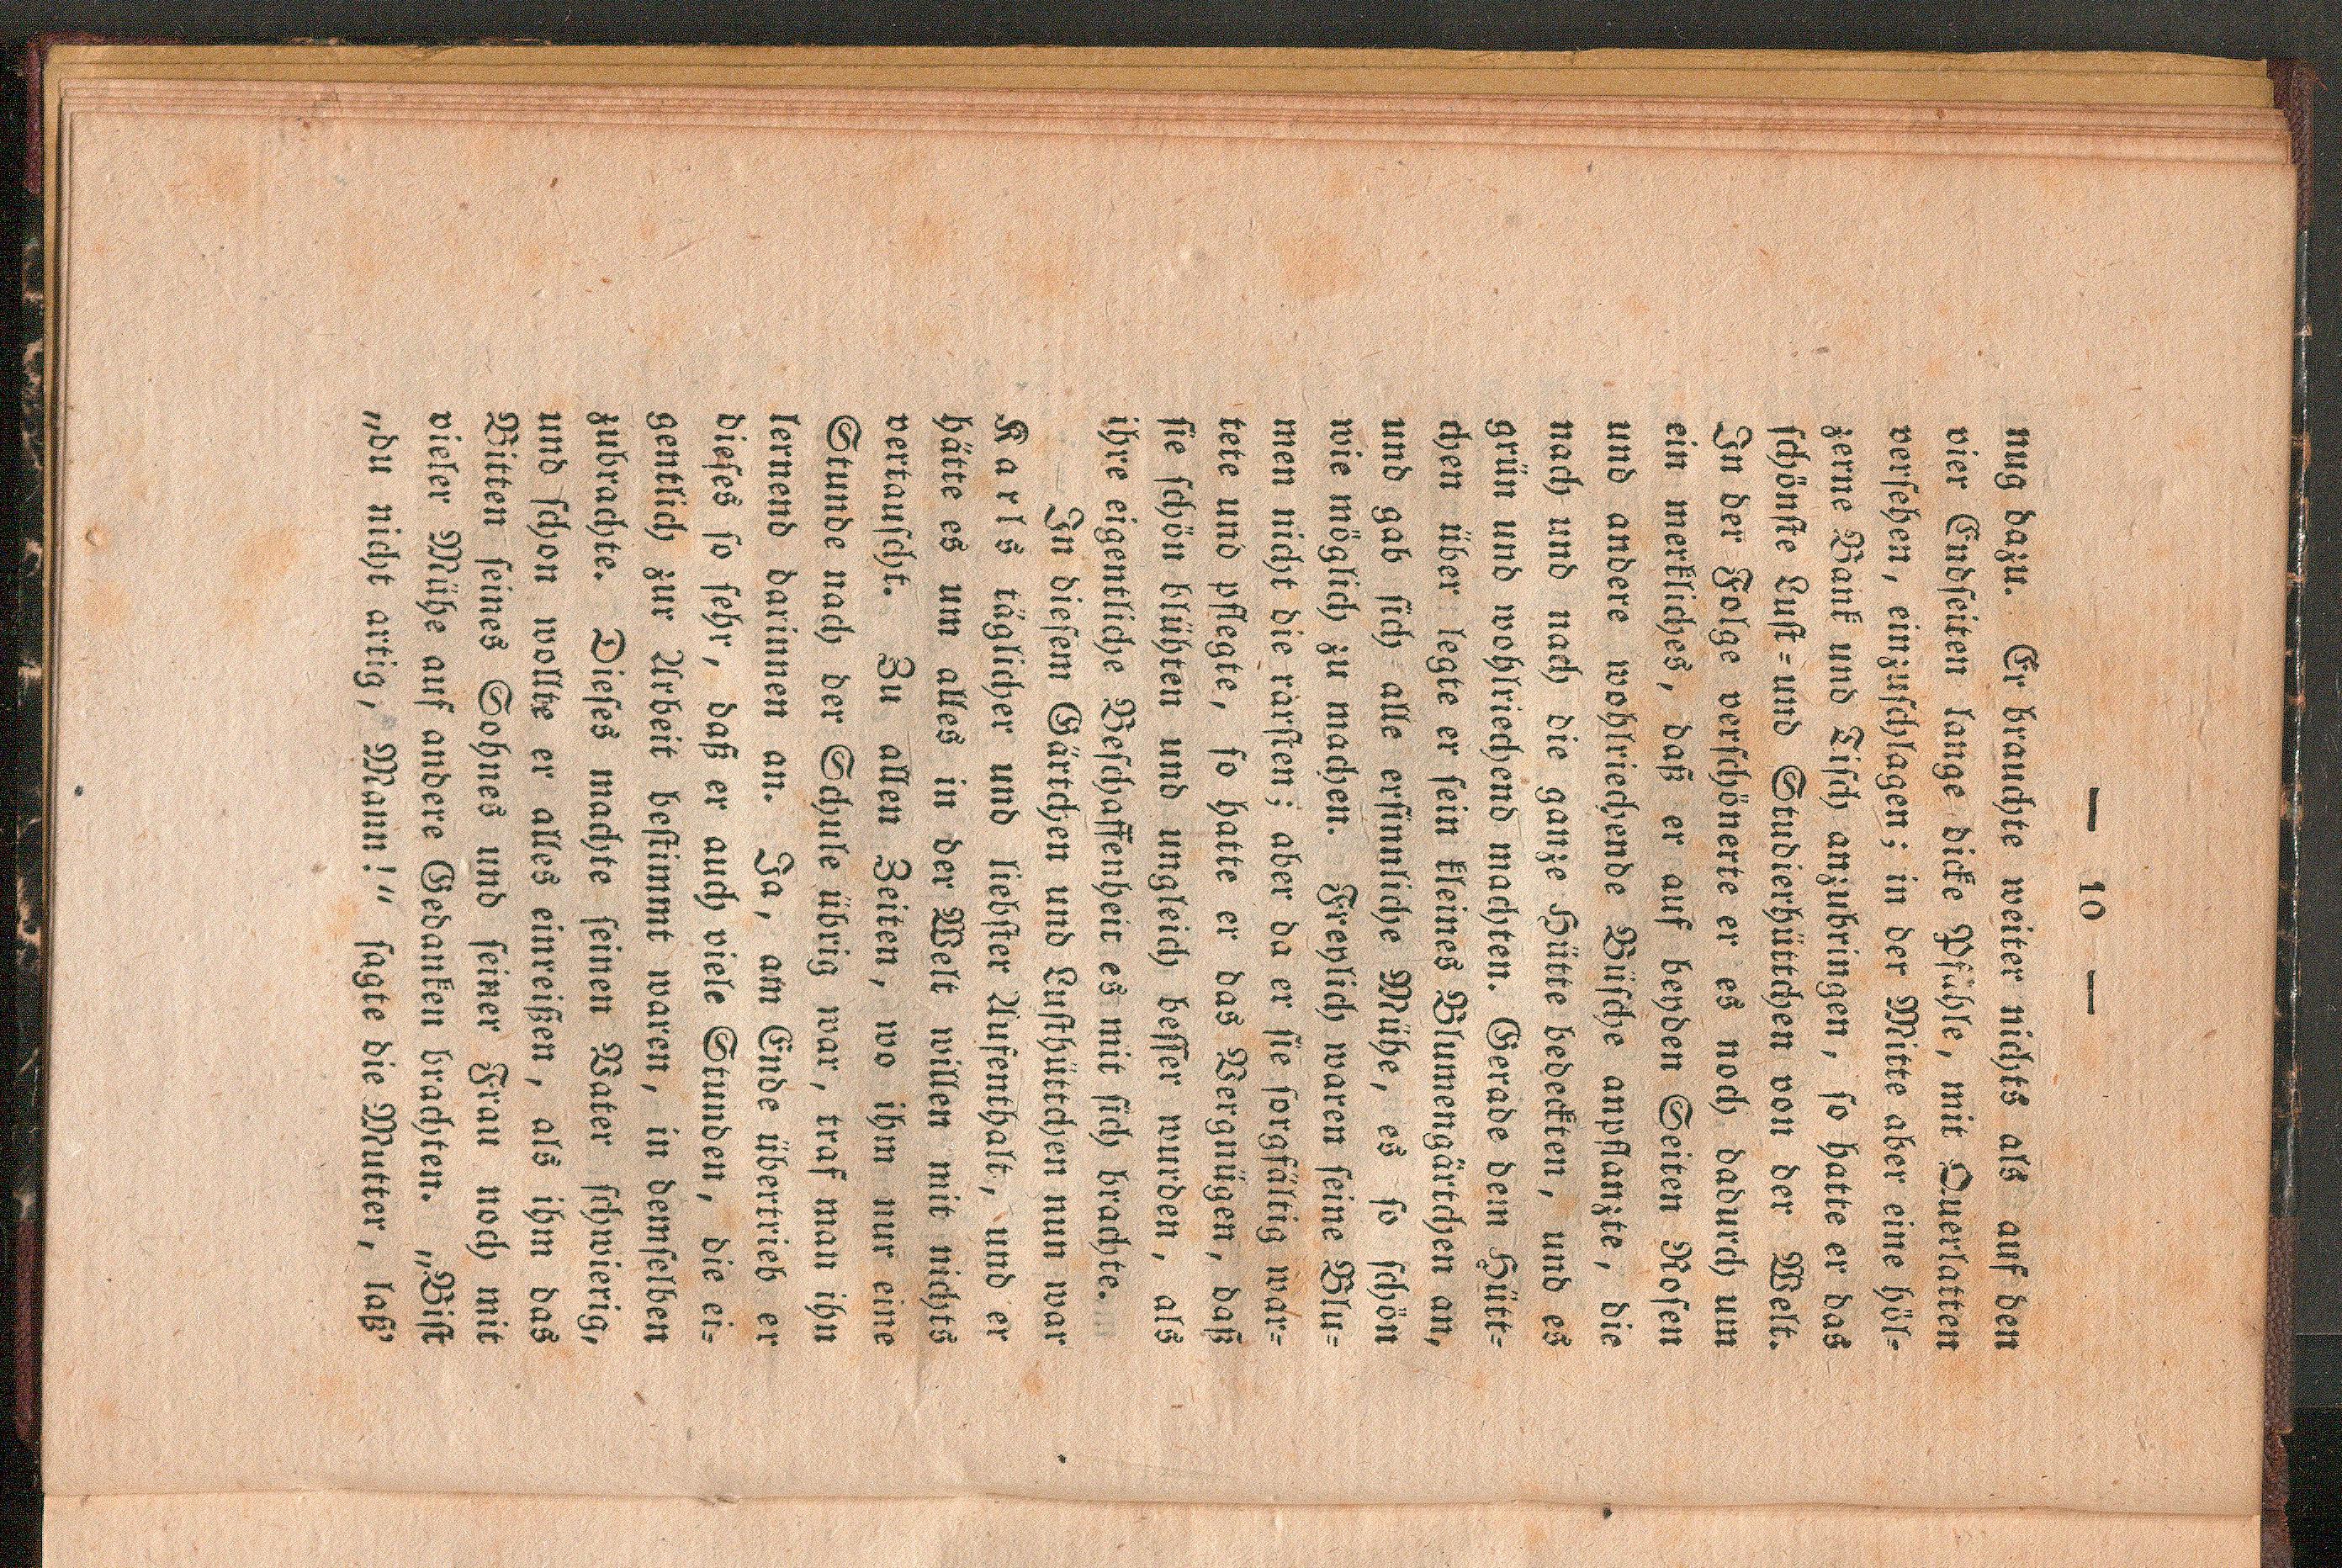 — 10 —
nug dazu. Er brauchte weiter nichts als auf den
vier Endseiten lange dicke Pfähle, mit Querlatten
versehen, einzuschlagen; in der Mitte aber eine höl⸗
zerne Bank und Tisch anzubringen, so hatte er das
schönste Lust⸗ und Studierhüttchen von der Welt.
In der Folge verschönerte er es noch dadurch um
ein merkliches, daß er auf beyden Seiten Rosen
und andere wohlriechende Büsche anpflanzte, die
nach und nach die ganze Hütte bedeckten, und es
grün und wohlriechend machten. Gerade dem Hütt⸗
chen über legte er sein kleines Blumengärtchen an,
und gab sich alle ersinnliche Mühe, es so schön
wie möglich zu machen. Freylich waren seine Blu⸗
men nicht die rarsten; aber da er sie sorgfältig war⸗
tete und pflegte, so hatte er das Vergnügen, daß
sie schön blühten und ungleich besser wurden, als
ihre eigentliche Beschaffenheit es mit sich brachte.
In diesem Gärtchen und Lusthüttchen nun war
Karls täglicher und liebster Aufenthalt, und er
hätte es um alles in der Welt willen mit nichts
vertauscht. Zu allen Zeiten, wo ihm nur eine
Stunde nach der Schule übrig war, traf man ihn
lernend darinnen an. Ja, am Ende übertrieb er
dieses so sehr, daß er auch viele Stunden, die ei⸗
gentlich zur Arbeit bestimmt waren, in demselben
zubrachte. Dieses machte seinen Vater schwierig,
und schon wollte er alles einreißen, als ihm das
Bitten seines Sohnes und seiner Frau noch mit
vieler Mühe auf andere Gedanken brachten. „Bist
„du nicht artig, Mann!“ sagte die Mutter, laß'